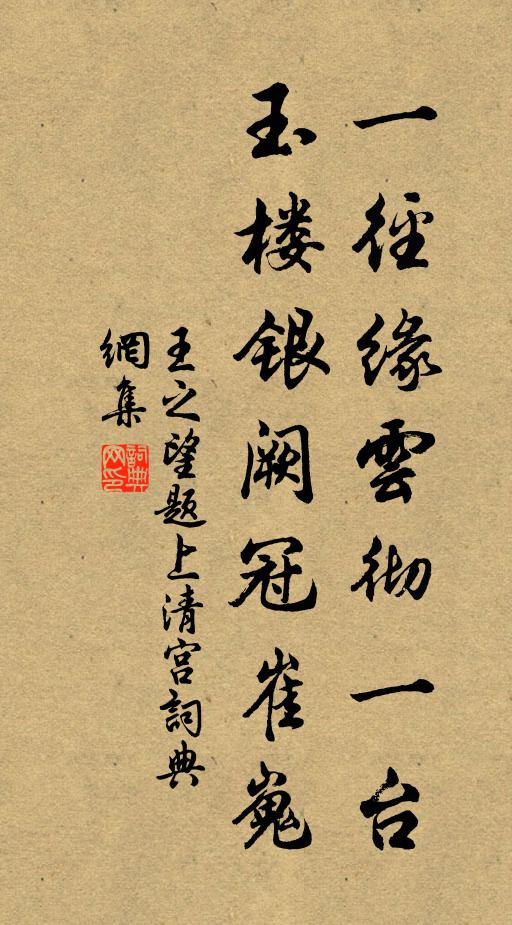 一徑緣雲彻一台
玉楼銀阙冠崔嵬
王之望题上清宫詞典
網集
詞典网印